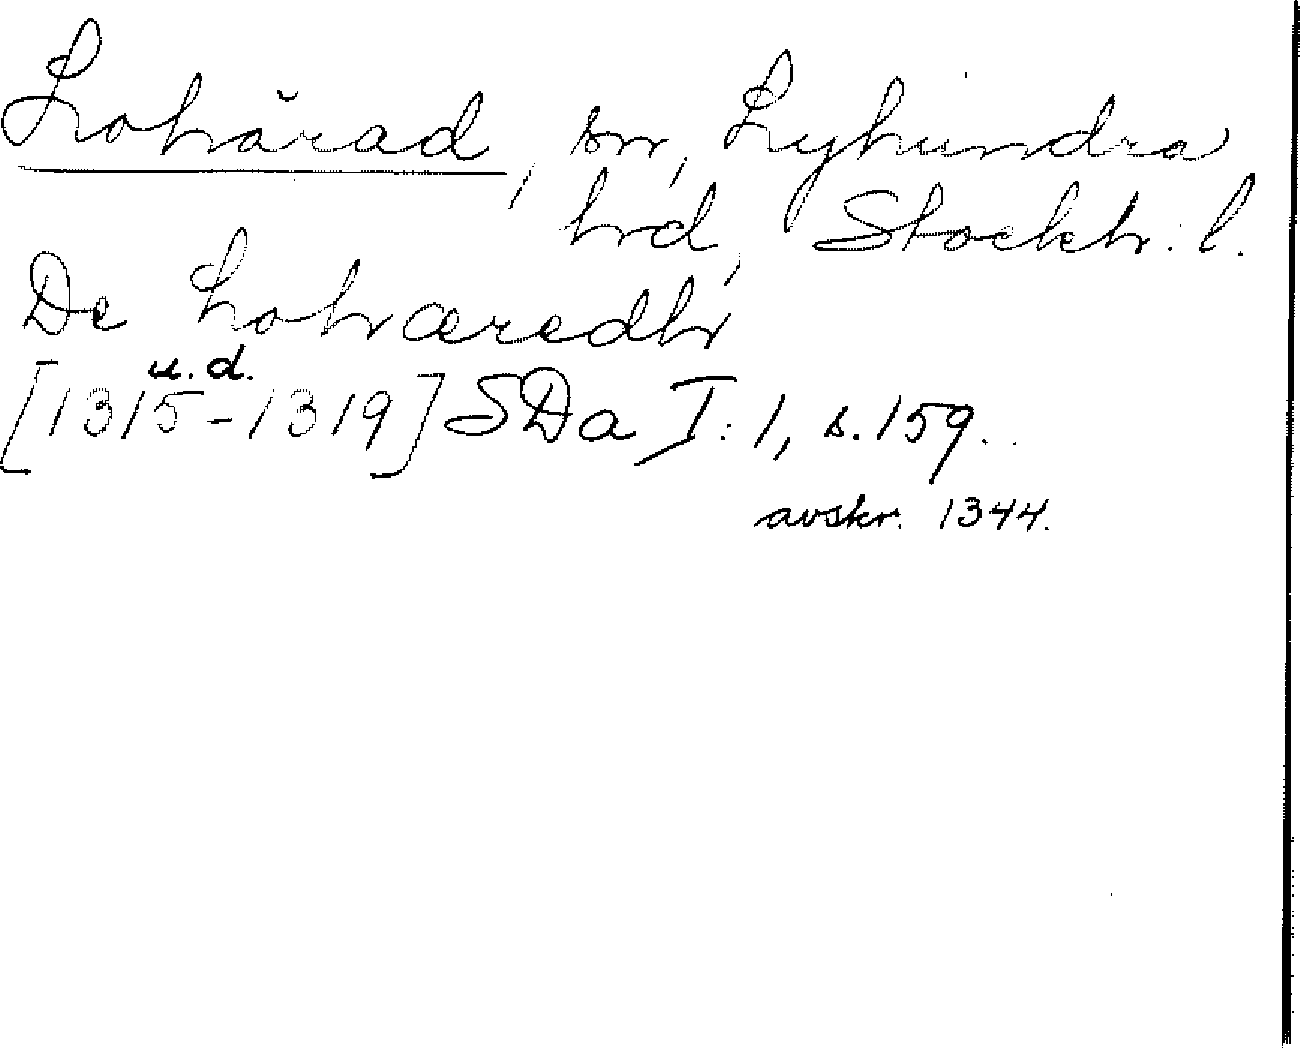 Lohärad, sn, Lyhundra
hrd, Stockh. l.
De Lohæredh
u. d.
[1315-1319] SDa I: 1, s. 159.
avskr. 1344.